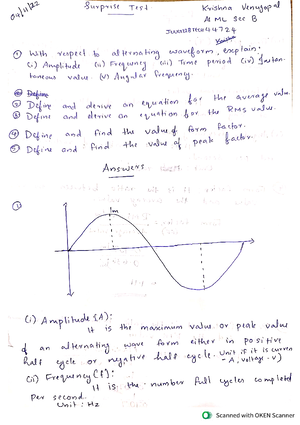 04/11/22
Surprise Test
Krishna Venugopal
AI ML Sec B
① With respect to alternating waveform, explain:
(i) Amplitude (ii) Frequency (iii) Time period (iv) Instan-
taneous value (v) Angular frequency.
② Define
② Define and derive an equation for the average value
③ Define and derive an equation for the RMS value.
④ Define and find the value of form factor.
⑤ Define and find the value of peak factor.
Answers
①
Im
(i) Amplitude (A):
It is the maximum value or peak value
of an alternating wave form either in positive
half cycle or negative half cycle. Unit if it is current
- A, voltage - V)
(ii) Frequency (f):
It is the number full cycles completed
Per second.
Unit: Hz
Scanned with OKEN Scanner